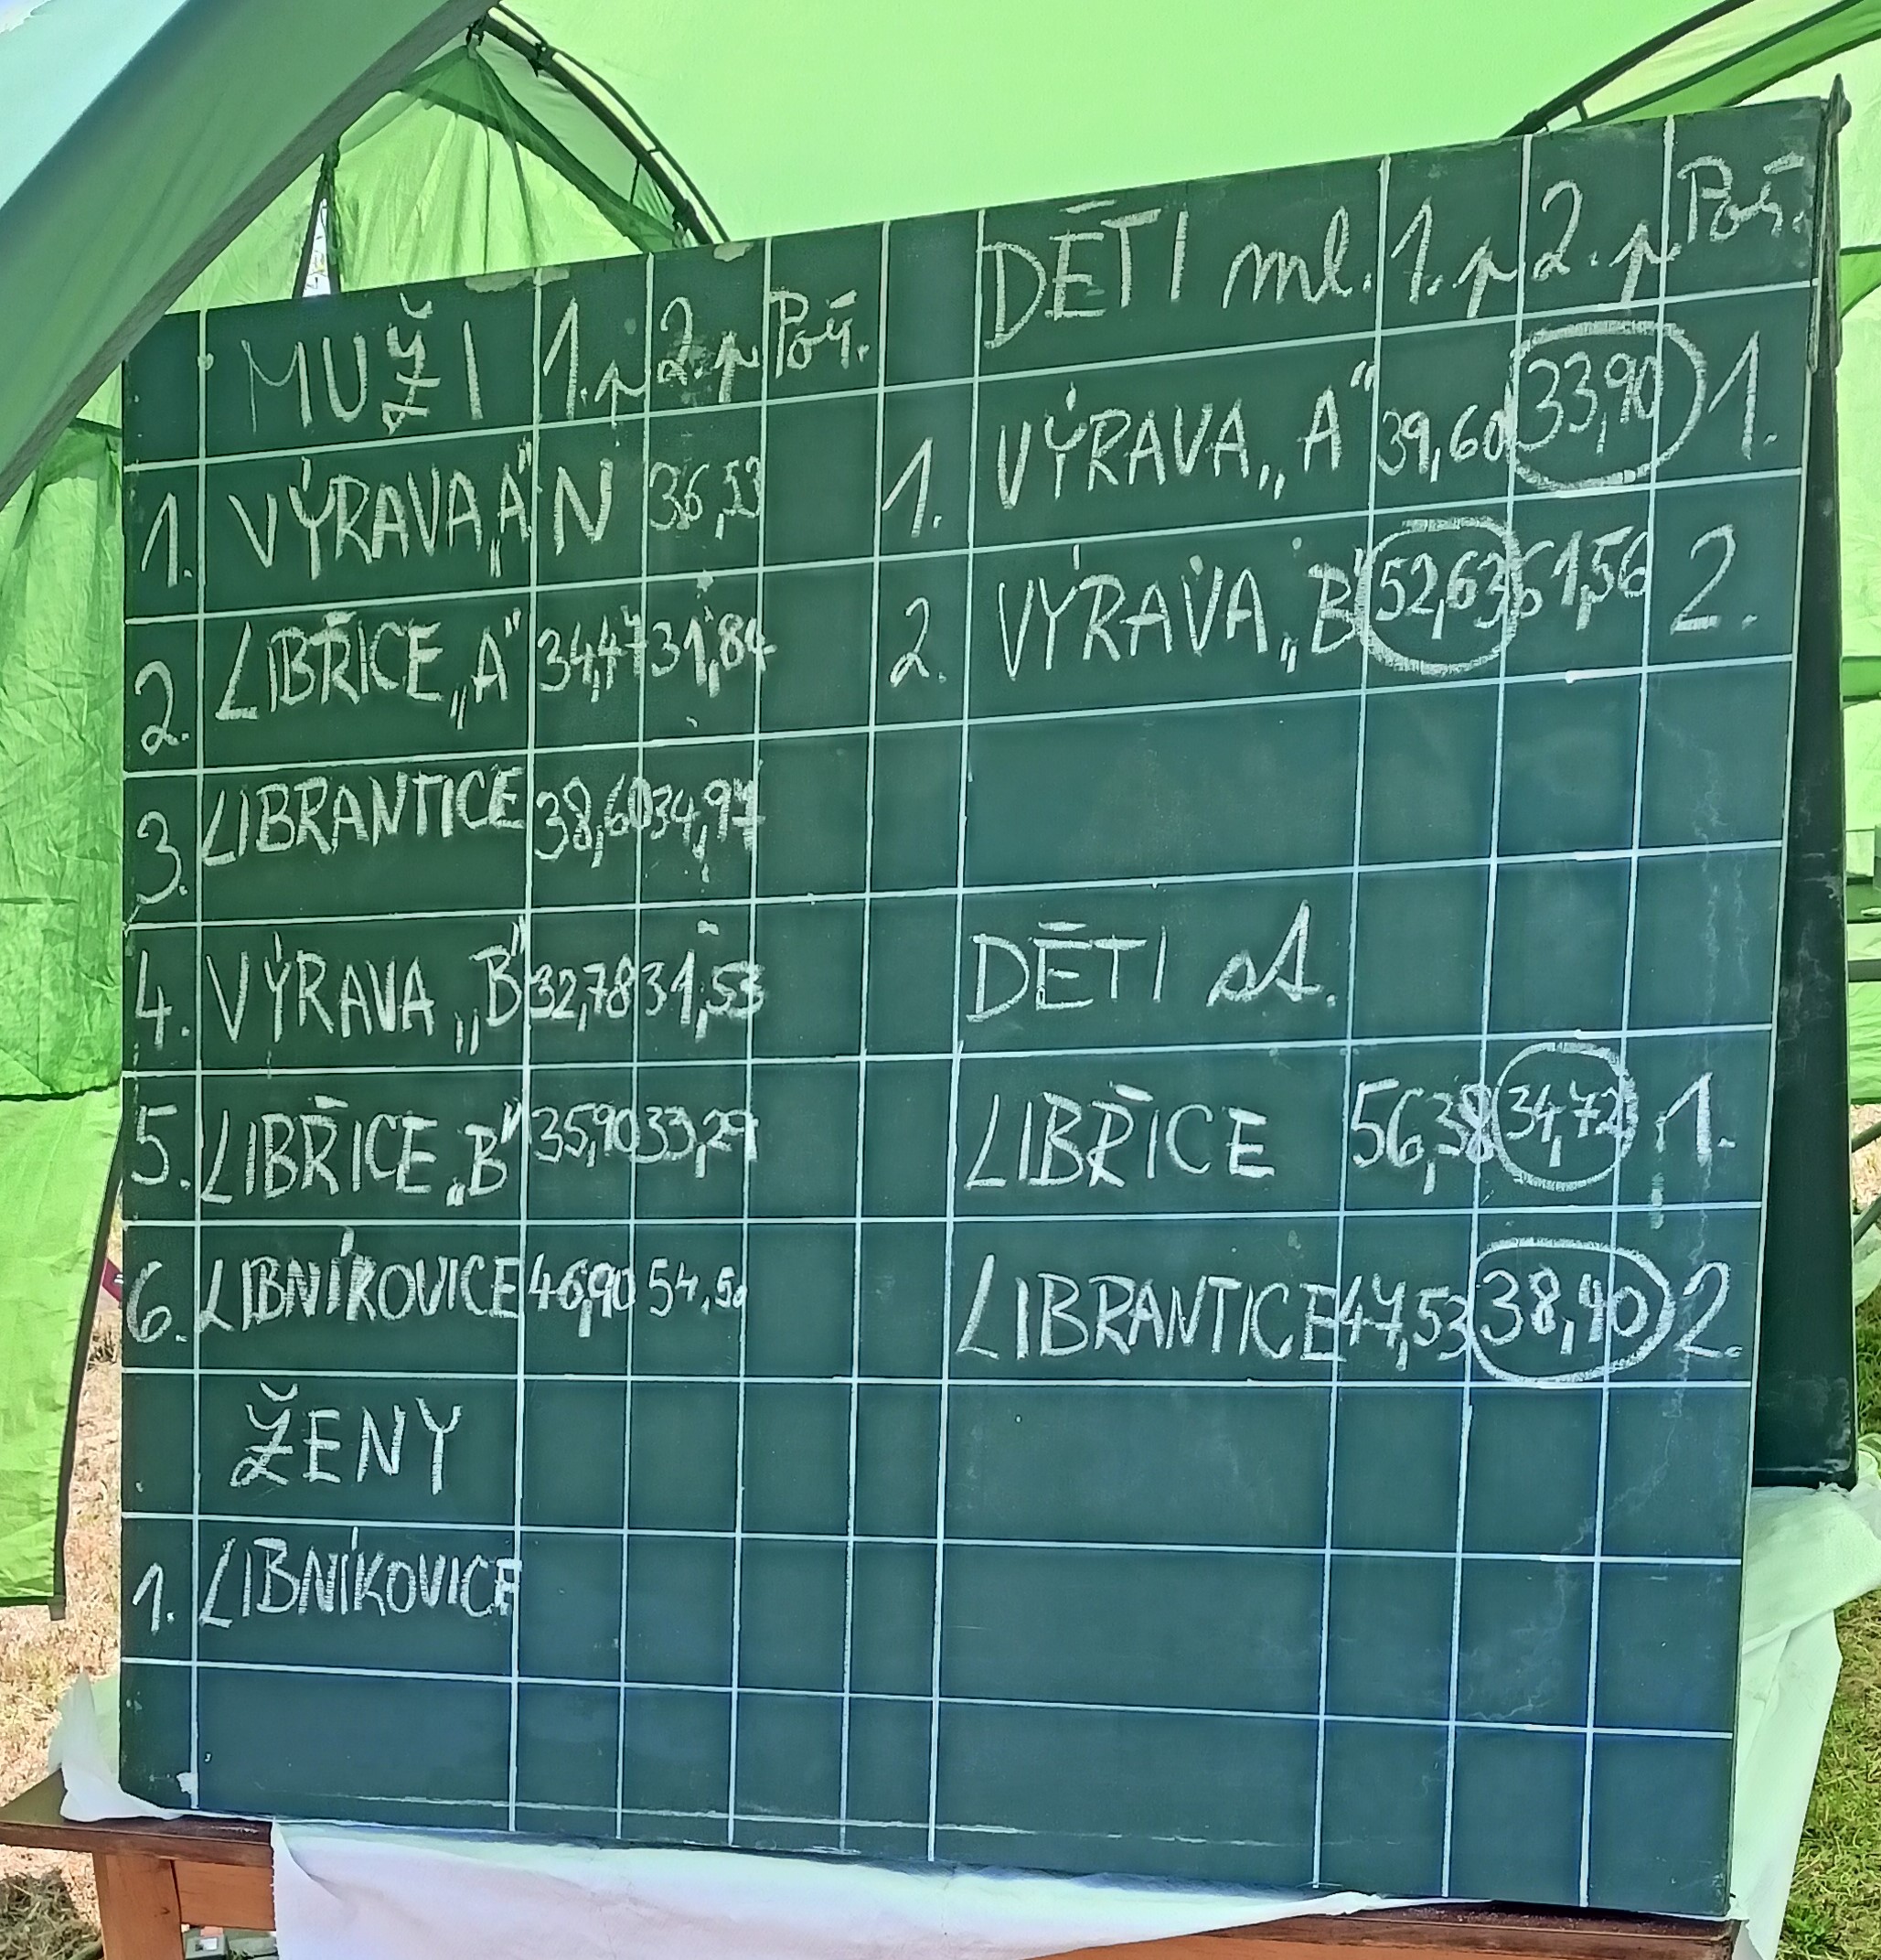 MUŽI 1. p 2. p Poř.
1. VÝRAVA „A" N 36,53
2. LIBŘICE „A" 34,47 31,84
3. LIBRANTICE 38,60 34,97
4. VÝRAVA „B" 32,78 31,53
5. LIBŘICE „B" 35,90 33,29
6. LIBNÍKOVICE 46,90 54,50
ŽENY
1. LIBNÍKOVICE
DĚTI ml. 1. p 2. p Poř.
1. VÝRAVA „A" 39,60 33,90 1.
2. VÝRAVA „B" 52,63 61,56 2.
DĚTI st.
LIBŘICE 56,38 34,72 1.
LIBRANTICE 47,53 38,40 2.